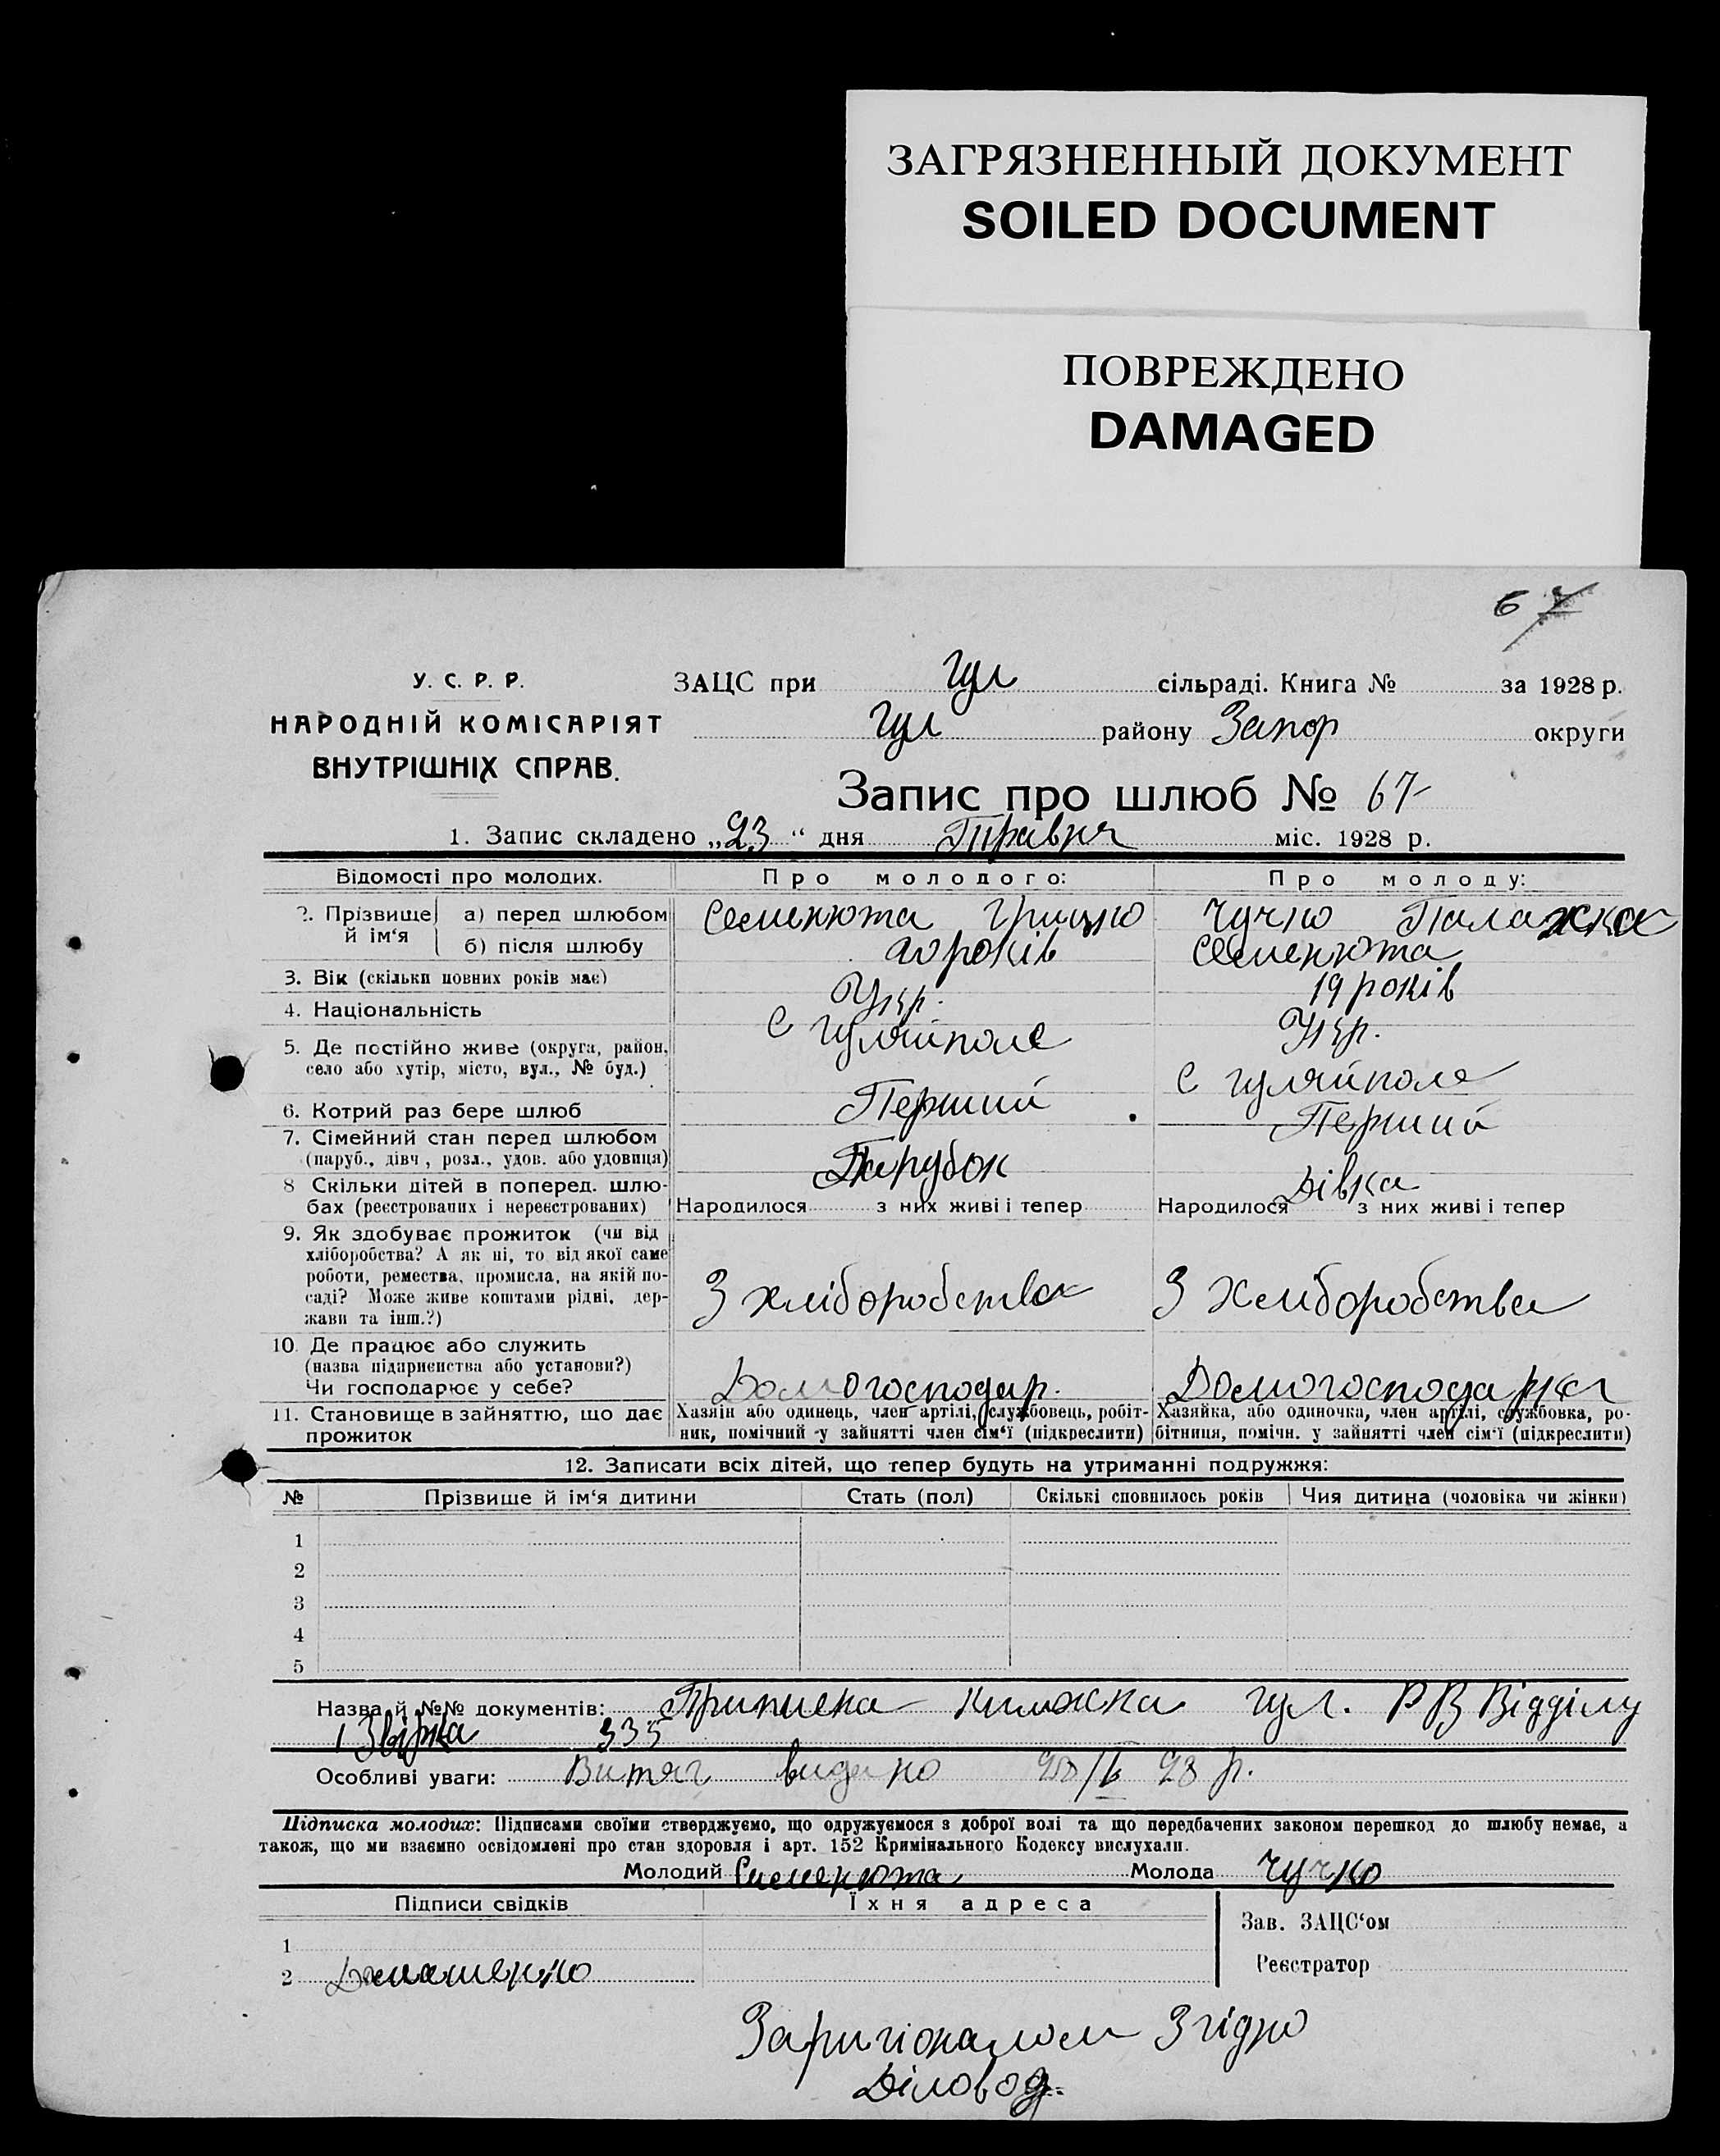 ЗАГРЯЗНЕННЫЙ ДОКУМЕНТ
SOILED DOCUMENT
ПОВРЕЖДЕНО
DAMAGED
67
У. С. Р. Р.
НАРОДНІЙ КОМІСАРІЯТ
ВНУТРІШНІХ СПРАВ.
ЗАЦС при Гул сільраді. Книга № за 1928 р.
Гул району Запор округи
Запис про шлюб № 67
1. Запис складено „23“ дня Травня міс. 1928 р.
Відомості про молодих. Про молодого: Про молоду:
2. Прізвище й ім‘я а) перед шлюбом Семенюта Грицко Чучко Палажка
б) після шлюбу Семенюта
3. Вік (скільки повних років має) 20 років 19 років
4. Національність Укр. Укр.
5. Де постійно живе (округа, район, село або хутір, місто, вул., № буд.) С Гуляйполе С Гуляйполе
6. Котрий раз бере шлюб Перший Перший
7. Сімейний стан перед шлюбом (паруб., дівч., розл., удов. або удовиця) Парубок Дівка
8 Скільки дітей в поперед. шлюбах (реєстрованих і нереєстрованих) Народилося з них живі і тепер Народилося з них живі і тепер
9. Як здобуває прожиток (чи від хліборобства? А як ні, то від якої саме роботи, ремества, промисла, на якій посаді? Може живе коштами рідні, держави та інш.?) З хліборобства З Хліборобства
10. Де працює або служить (назва підприєнства або установи?) Чи господарює у себе? Домогосподар. Домогосподарка
11. Становище в зайняттю, що дає прожиток Хазяін або одинець, член артілі, службовець, робітник, помічний у зайнятті член сім‘ї (підкреслити) Хазяйка, або одиночка, член артілі, службовка, робітниця, помічн. у зайнятті член сім‘ї (підкреслити)
12. Записати всіх дітей, що тепер будуть на утриманні подружжя:
№ Прізвише й ім‘я дитини Стать (пол) Скількі сповнилось років Чия дитина (чоловіка чи жінки)
1
2
3
4
5
Назва й №№ документів: Приписна книжка Гул. РВ Відділу
335
Особливі уваги: Витяг видано 28 р.
Підписка молодих: Підписами своїми стверджуємо, що одружуємося з доброї волі та що передбачених законом перешкод до шлюбу немає, а
також, що ми взаємно освідомлені про стан здоровля і арт. 152 Кримінального Кодексу вислухали.
Молодий Семенюта Молода Чучко
Підписи свідків Їхня адреса
Зав. ЗАЦС‘ом
1
Реєстратор
2
Згідно
Діловод